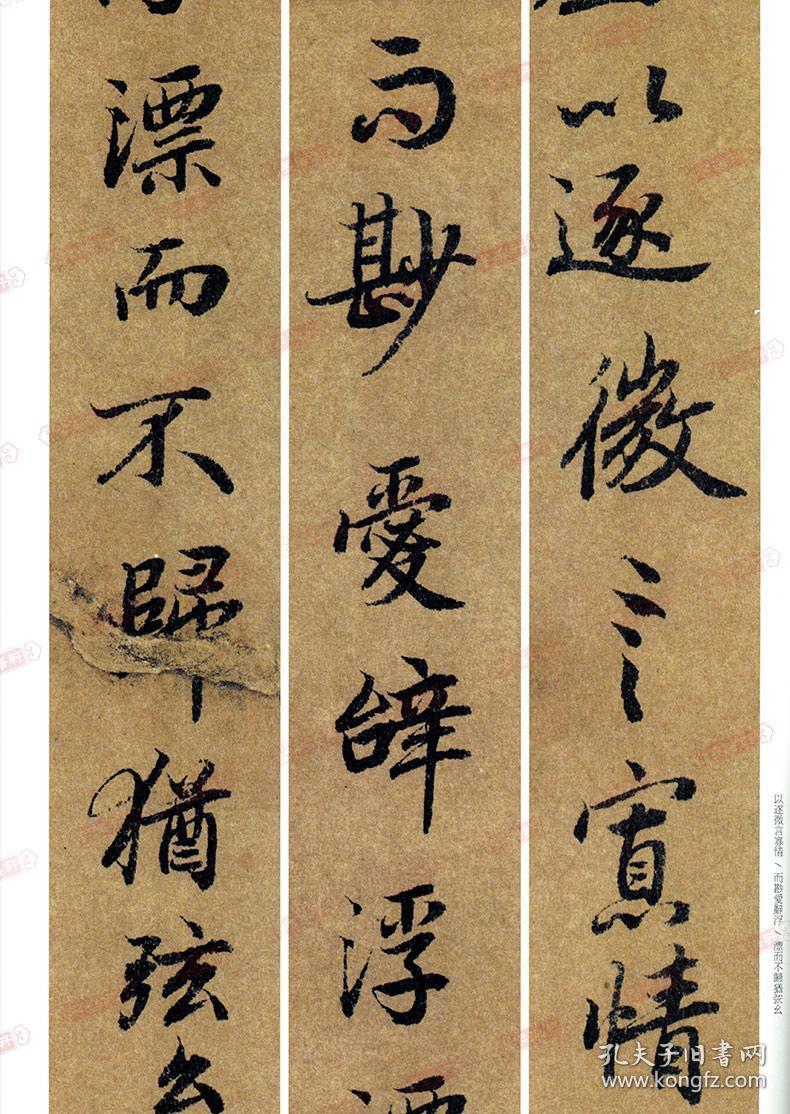 以逐微言寡情
而尠愛辭浮
漂而不歸猶弦幺
以逐微言寡情/而尠愛辭浮/漂而不歸猶弦幺
孔夫子旧书网
www.kongfz.com